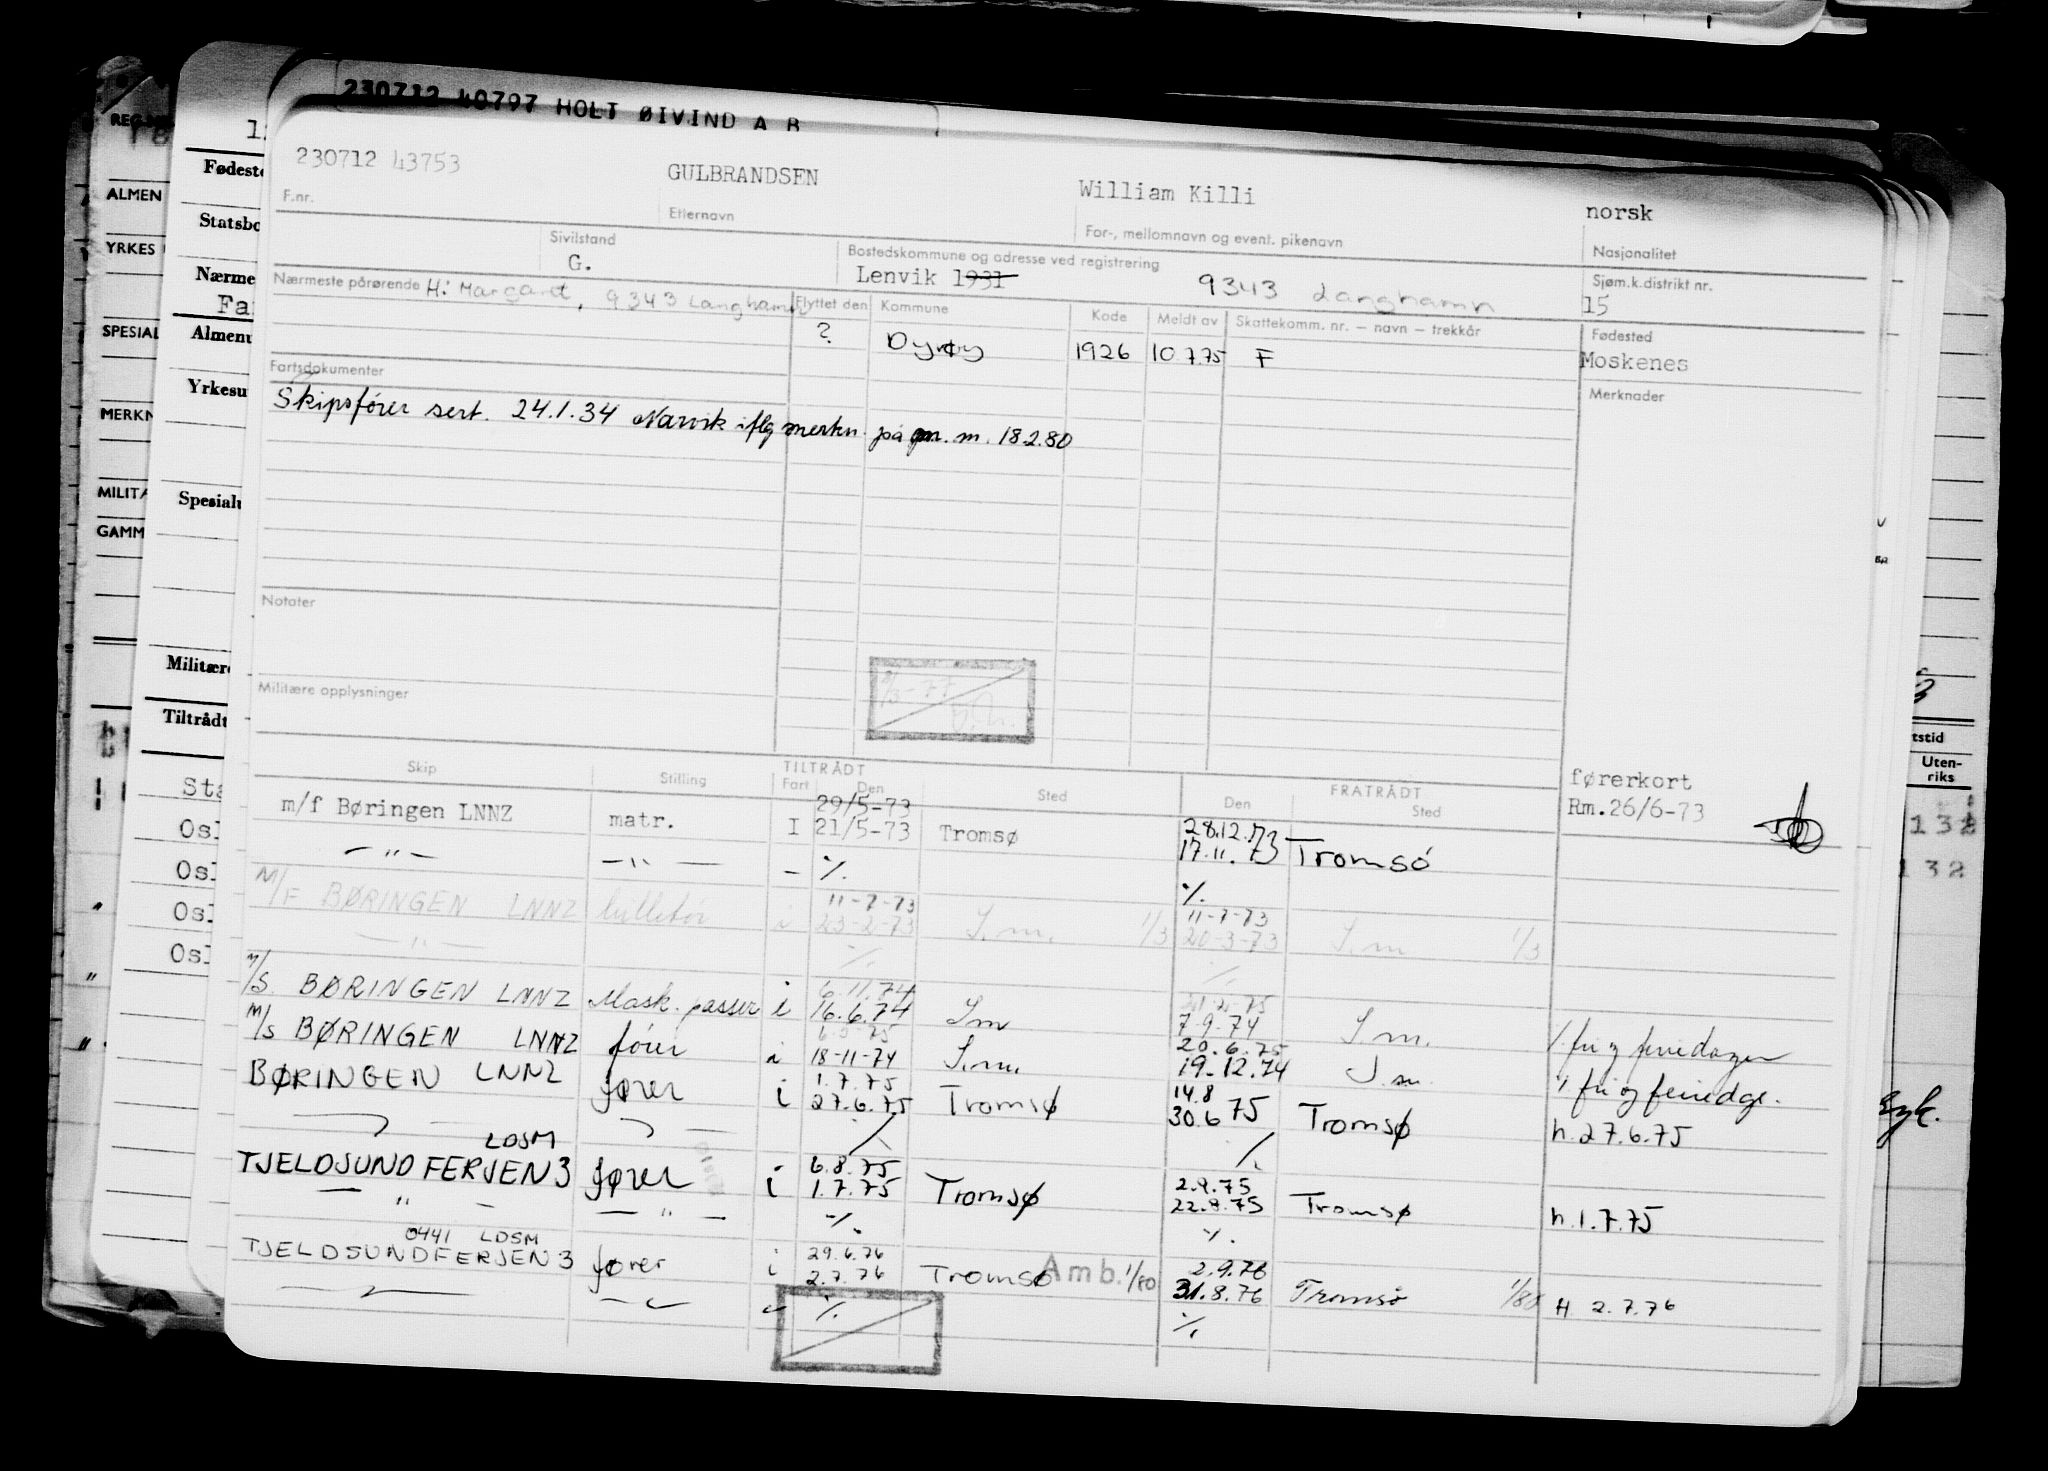 230712 40797 HOLT ØIVIND A B
230712 43753 GULBRANDSEN William Killi norsk
F.nr. Etternavn For-, mellomnavn og event. pikenavn Nasjonalitet
Sivilstand Bostedskommune og adresse ved registrering Sjøm.k.distrikt nr.
G. Lenvik 1931 9343 Langhamn 15
Nærmeste pårørende H: Margaret, 9343 Langhamn Flyttet den Kommune Kode Meldt av Skattekomm. nr. – navn – trekkår Fødested
? Dyrøy 1926 10.7.75 F Moskenes
Fartsdokumenter Merknader
Skipsfører sert. 24.1.34 Narvik iflg merkn. på m. 18.2.80
Notater
Militære opplysninger
Skip Stilling TILTRÅDT Fart Den Sted FRATRÅDT Den Sted førerkort
29/5-73 28.12.73 Rm.26/6-73
m/f Børingen LNNZ matr. I 21/5-73 Tromsø 17.11.73 Tromsø
— " — — " — - ⁒ ⁒
11-7-73 11-7-73
M/F BØRINGEN LNNZ i 23-2-73 S.m. 1/3 20-3-73 S.m 1/3
— " — ⁒ ⁒
6.11.74
M/S. BØRINGEN LNNZ Mask. passer i 16.6.74 S.m 7.9.74 S.m.
20.6.75
M/S BØRINGEN LNNZ fører i 18-11-74 S.m. 19.12.74 S.m.
1.7.75 14.8
BØRINGEN LNNZ fører i 27.6.75 Tromsø 30.6 75 Tromsø h.27.6.75
LDSM 6.8.75 2.9.75
TJELDSUND FERJEN 3 fører i 1.7.75 Tromsø 22.8.75 Tromsø h.1.7.75
— " — — " — ⁒ ⁒
0441 LDSM 29.6.76 2.9.76
TJELDSUNDFERJEN 3 fører i 2.7.76 Tromsø Amb. 1/80 31.8.76 Tromsø 1/80 H 2.7.76
⁒ ⁒
REG.
ALMEN
YRKES
SPESIAL
MERKN
MILITÆ
GAMM
Fødeste
Statsbo
Nærme
Fa
Almenu
Yrkesu
Spesialu
Militære
Tiltrådt
Sta
Osl
Osl
Osl
Osl
tstid
Uten-
riks
132
132